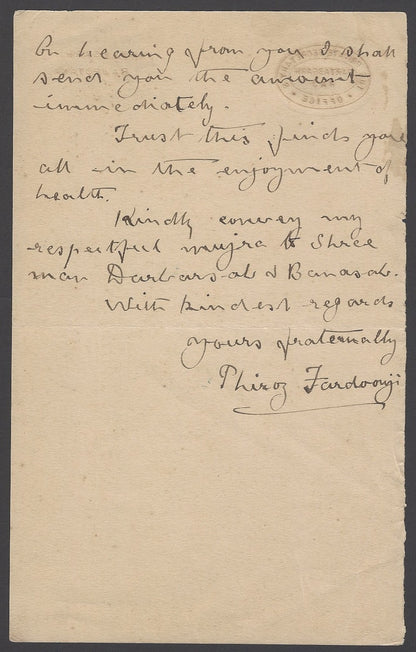 On hearing from you I shall
send you the amount
immediately.
Trust this finds you
all in the enjoyment of
health.
Kindly convey my
respectful mujra to Shree
man Darbarsab & Banasab.
With kindest regards
yours fraternally
Phiroz Fardoonji
OFFICE